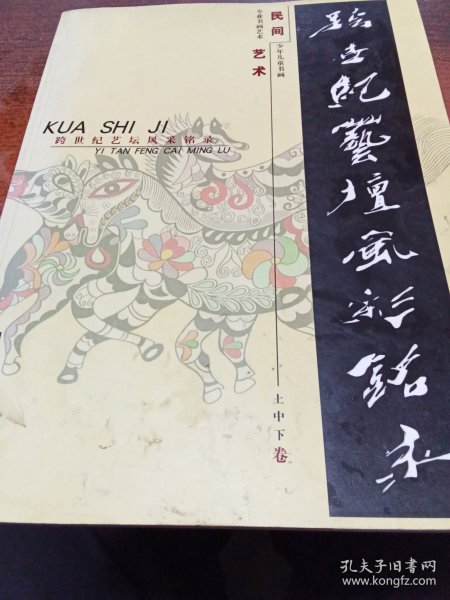 跨世紀藝壇風彩銘录
民间艺术
专业书画艺术
少年儿童书画
KUA SHI JI
跨世纪艺坛风采铭录
YI TAN FENG CAI MING LU
上中下卷
孔夫子旧书网
www.kongfz.com